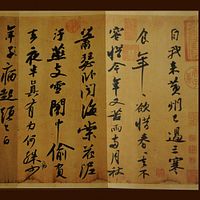 自我來黃州已過三寒
食年〻欲惜春〻去不
容惜今年又苦雨兩月秋
蕭瑟卧聞海棠花泥
汙燕支雪闇中偷負
去夜半真有力何殊少
年子病起頭已白